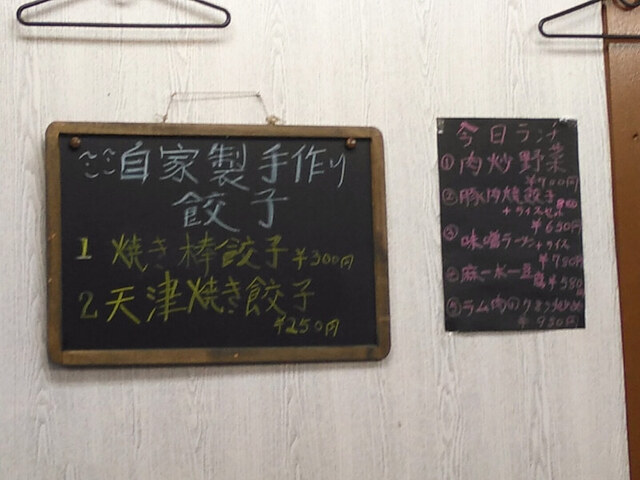 自家製手作り
餃子
1 焼き棒餃子 ¥300円
2 天津焼き餃子
¥250円
今日ランチ
① 肉炒野菜
¥700円
② 豚肉焼餃子
+ライスセット
¥650円
③ 味噌ラーメン+ライス
¥750円
④ 麻一水一豆腐 ¥580
⑤ ラム肉の
¥950円